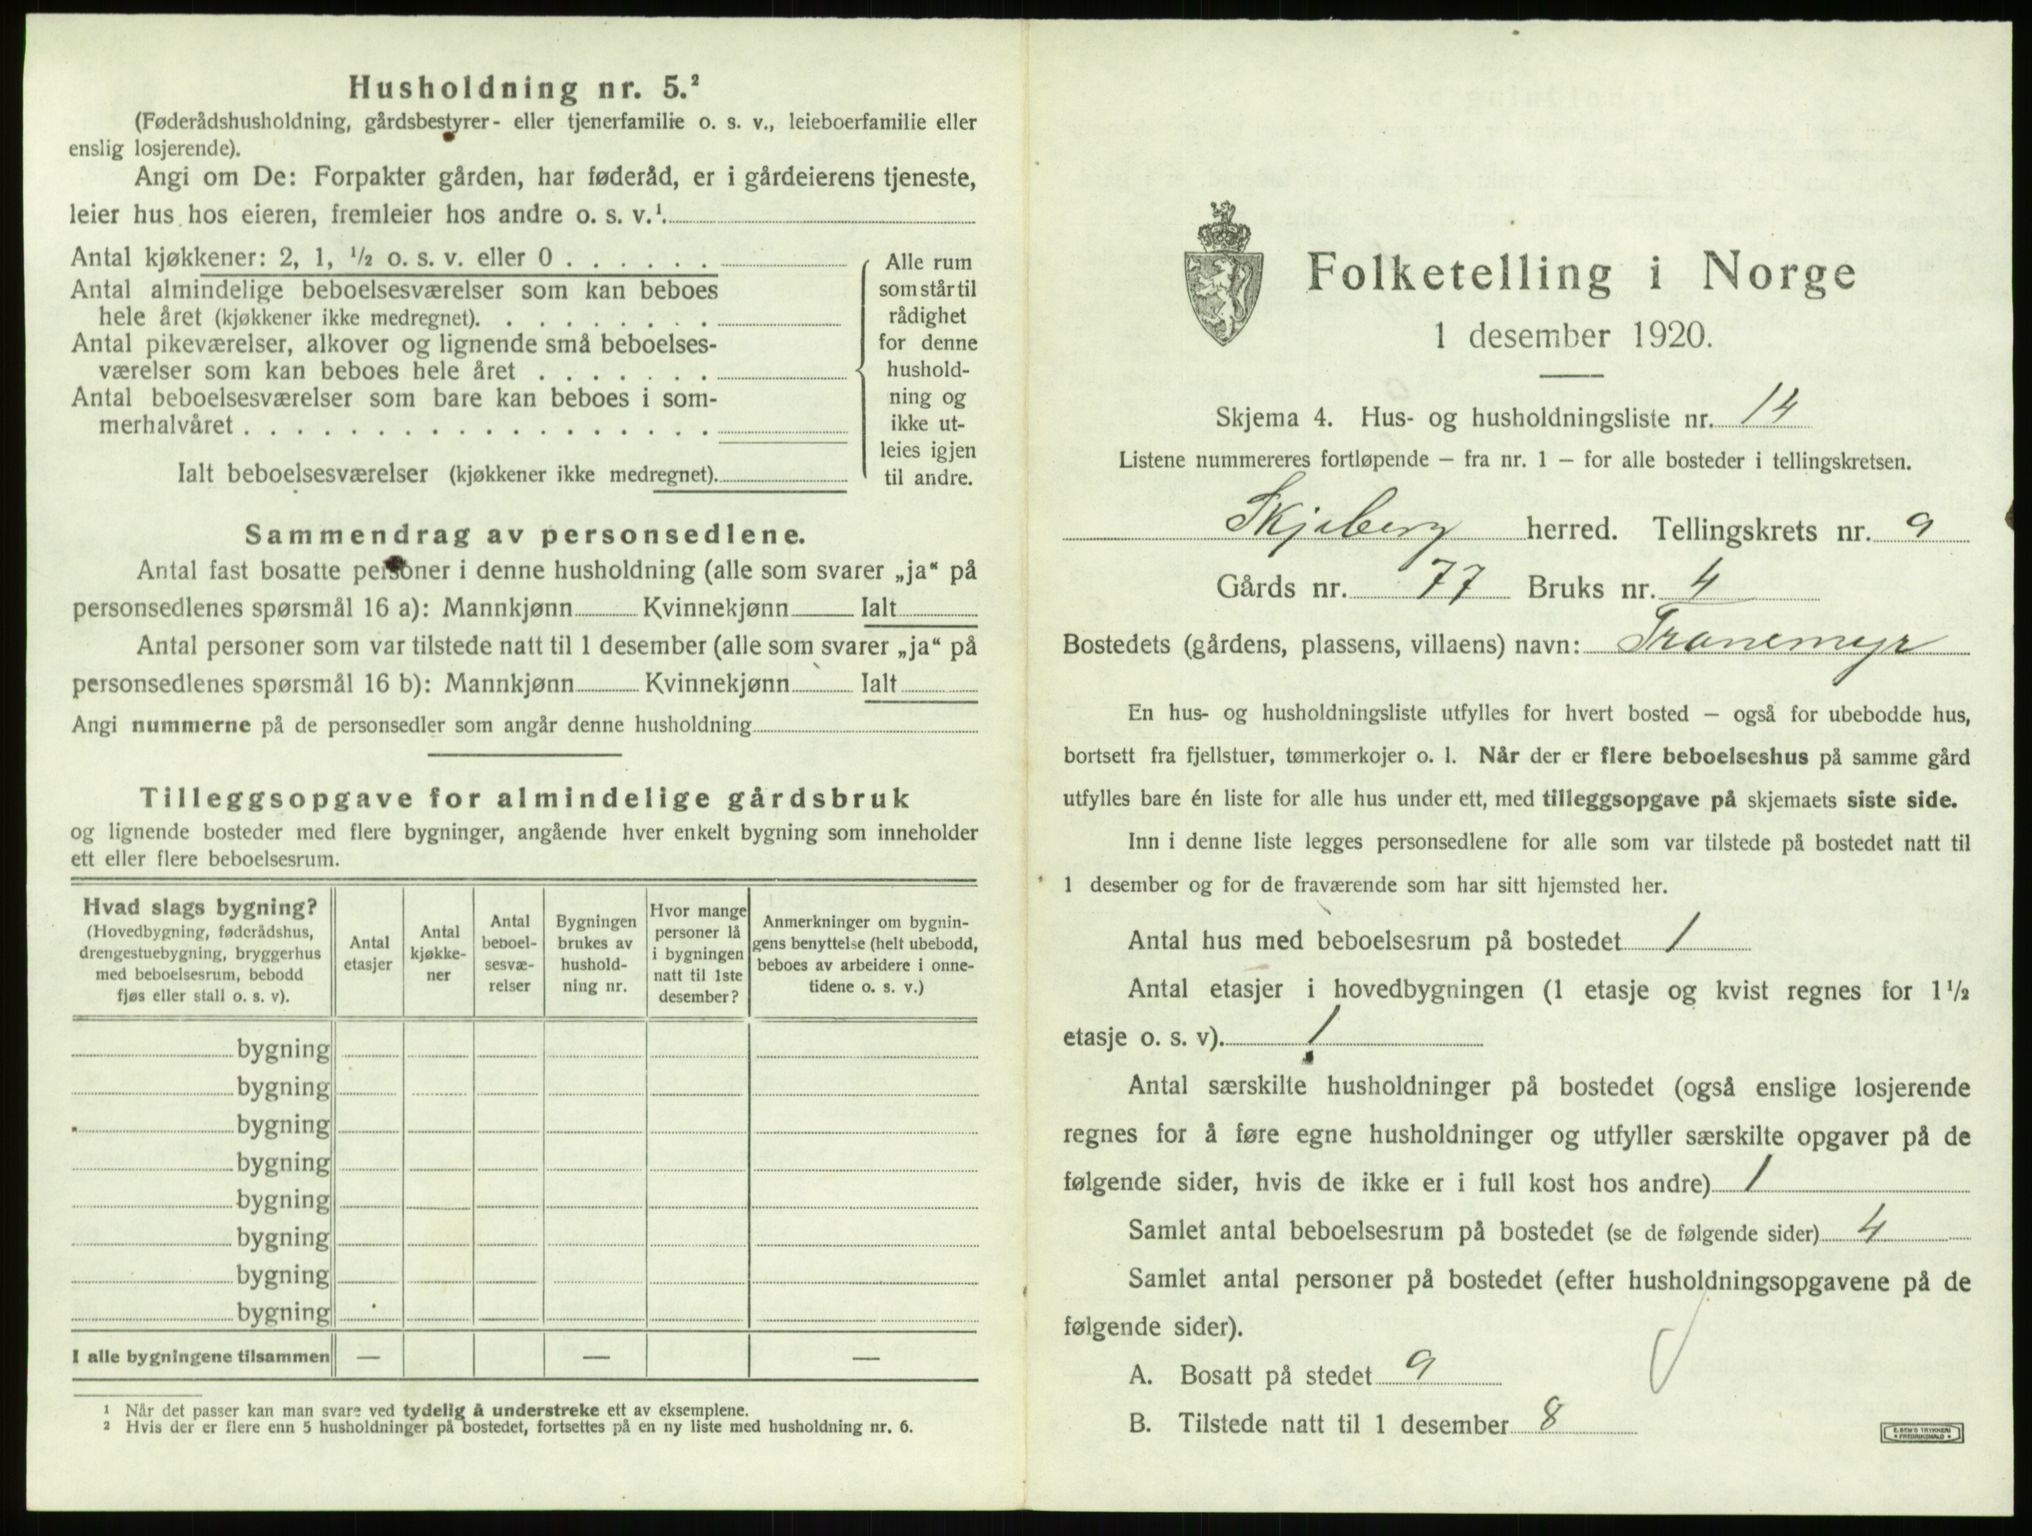 Husholdning nr. 5.²
(Føderådshusholdning, gårdsbestyrer- eller tjenerfamilie o. s. v., leieboerfamilie eller
enslig losjerende).
Angi om De: Forpakter gården, har føderåd, er i gårdeierens tjeneste,
leier hus hos eieren, fremleier hos andre o. s. v.¹.
Antal kjøkkener: 2, 1, ½ o. s. v. eller 0 . . . . . .
Antal almindelige beboelsesværelser som kan beboes
hele året (kjøkkener ikke medregnet). . . . . . . . .
Antal pikeværelser, alkover og lignende små beboelses-
værelser som kan beboes hele året . . . . . . .
Antal beboelsesværelser som bare kan beboes i som-
merhalvåret . . . . . . . . . . . . . . . . . .
Ialt beboelsesværelser (kjøkkener ikke medregnet).
Alle rum
som står til
rådighet
for denne
hushold-
ning og
ikke ut-
leies igjen
til andre.
Sammendrag av personsedlene.
Antal fast bosatte personer i denne husholdning (alle som svarer „ja“ på
personsedlenes spørsmål 16 a): Mannkjønn Kvinnekjønn Ialt
Antal personer som var tilstede natt til 1 desember (alle som svarer „ja“ på
personsedlenes spørsmål 16 b): Mannkjønn Kvinnekjønn Ialt
Angi nummerne på de personsedler som angår denne husholdning
Tilleggsopgave for almindelige gårdsbruk
og lignende bosteder med flere bygninger, angående hver enkelt bygning som inneholder
ett eller flere beboelsesrum.
Hvad slags bygning?
(Hovedbygning, føderådshus,
drengestuebygning, bryggerhus
med beboelsesrum, bebodd
fjøs eller stall o. s. v).
Antal
etasjer
Antal
kjøkke-
ner
Antal
beboel-
sesvæ-
relser
Bygningen
brukes av
hushold-
ning nr.
Hvor mange
personer lå
i bygningen
natt til 1ste
desember?
Anmerkninger om bygnin-
gens benyttelse (helt ubebodd,
beboes av arbeidere i onne-
tidene o. s. v.)
bygning
bygning
bygning
bygning
bygning
bygning
bygning
bygning
I alle bygningene tilsammen — — —
¹ Når det passer kan man svare ved tydelig å understreke ett av eksemplene.
² Hvis der er flere enn 5 husholdninger på bostedet, fortsettes på en ny liste med husholdning nr. 6.
Folketelling i Norge
1 desember 1920.
Skjema 4. Hus- og husholdningsliste nr. 14
Listene nummereres fortløpende – fra nr. 1 – for alle bosteder i tellingskretsen.
Skjeberg herred. Tellingskrets nr. 9
Gårds nr. 77 Bruks nr. 4
Bostedets (gårdens, plassens, villaens) navn: Tranemyr
En hus- og husholdningsliste utfylles for hvert bosted – også for ubebodde hus,
bortsett fra fjellstuer, tømmerkojer o. l. Når der er flere beboelseshus på samme gård
utfylles bare én liste for alle hus under ett, med tilleggsopgave på skjemaets siste side.
Inn i denne liste legges personsedlene for alle som var tilstede på bostedet natt til
1 desember og for de fraværende som har sitt hjemsted her.
Antal hus med beboelsesrum på bostedet 1
Antal etasjer i hovedbygningen (1 etasje og kvist regnes for 1½
etasje o. s. v). 1
Antal særskilte husholdninger på bostedet (også enslige losjerende
regnes for å føre egne husholdninger og utfyller særskilte opgaver på de
følgende sider, hvis de ikke er i full kost hos andre) 1
Samlet antal beboelsesrum på bostedet (se de følgende sider) 4
Samlet antal personer på bostedet (efter husholdningsopgavene på de
følgende sider).
A. Bosatt på stedet 9
B. Tilstede natt til 1 desember 8
E. SEM'S TRYKKERI
FREDRIKSHALD